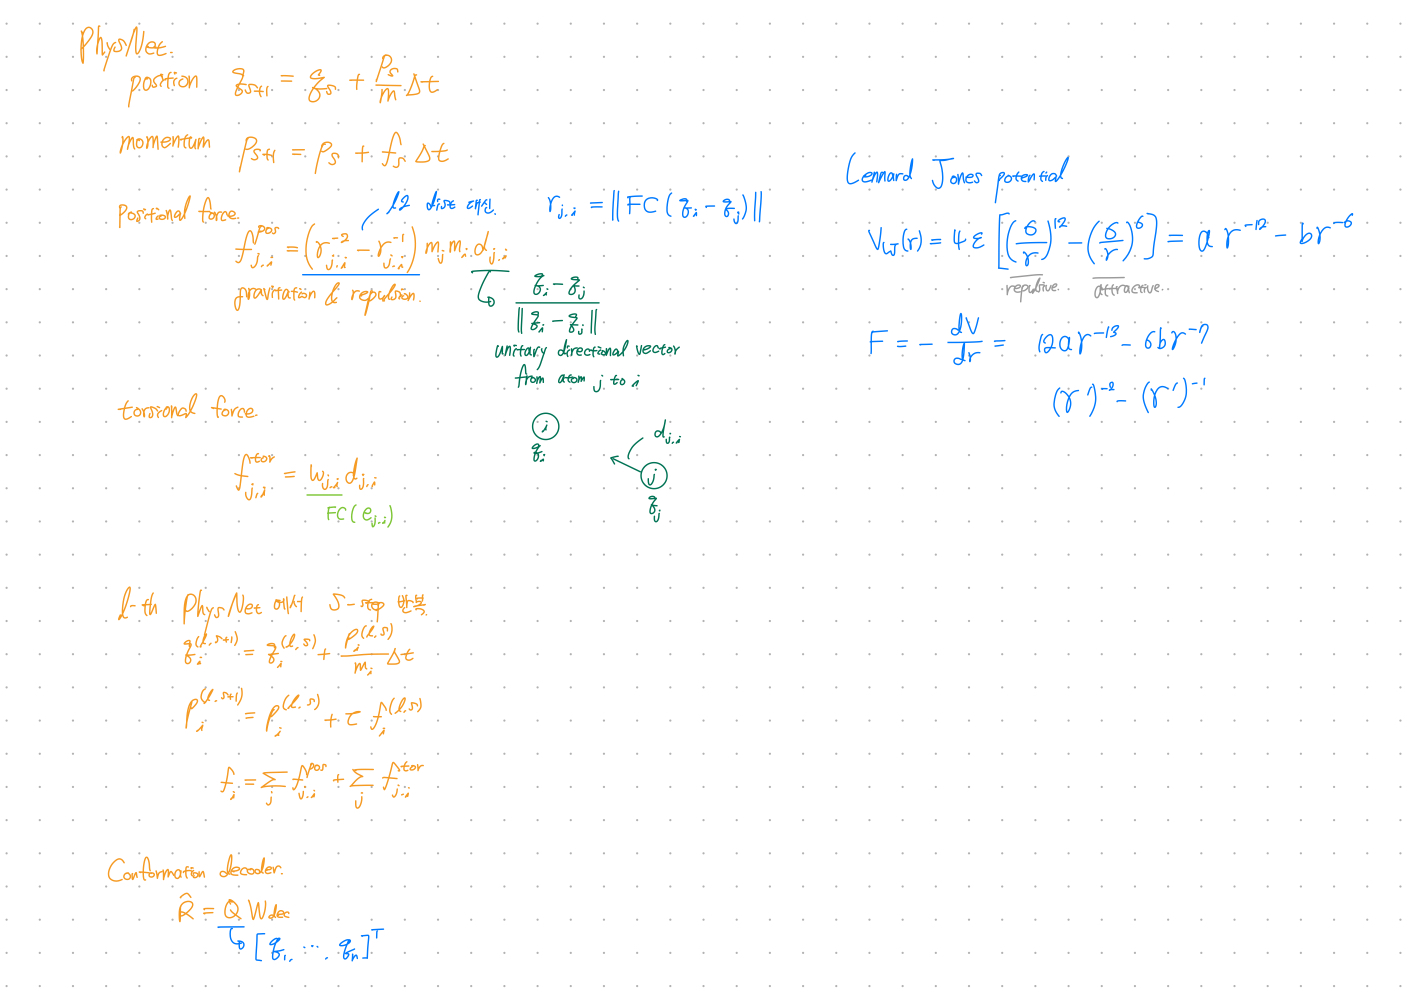 PhysNet.
position q_{s+1} = q_s + \frac{p_s}{m} Δt
momentum p_{s+1} = p_s + f_s Δt
positional force.
l2 dist 대신. r_{j,i} = ‖ FC ( q_i - q_j ) ‖
f_{j,i}^{pos} = ( r_{j,i}^{-2} - r_{j,i}^{-1} ) m_j m_i d_{j,i}
gravitation & repulsion.
\frac{q_i - q_j}{‖ q_i - q_j ‖}
unitary directional vector
from atom j to i
torsional force.
f_{j,i}^{tor} = w_{j,i} d_{j,i}
FC ( e_{j,i} )
i
q_i
d_{j,i}
j
q_j
l-th PhysNet 에서 S-step 반복.
q_i^{(l,s+1)} = q_i^{(l,s)} + \frac{p_i^{(l,s)}}{m_i} Δt
p_i^{(l,s+1)} = p_i^{(l,s)} + τ f_i^{(l,s)}
f_i = Σ_j f_{j,i}^{pos} + Σ_j f_{j,i}^{tor}
Conformation decoder.
R̂ = Q W_{dec}
[ q_1, ⋯, q_n ]^T
Lennard Jones potential
V_{LJ}(r) = 4 ε [ ( \frac{σ}{r} )^{12} - ( \frac{σ}{r} )^6 ] = a r^{-12} - b r^{-6}
repulsive. attractive.
F = - \frac{dV}{dr} = 12 a r^{-13} - 6 b r^{-7}
(r')^{-2} - (r')^{-1}